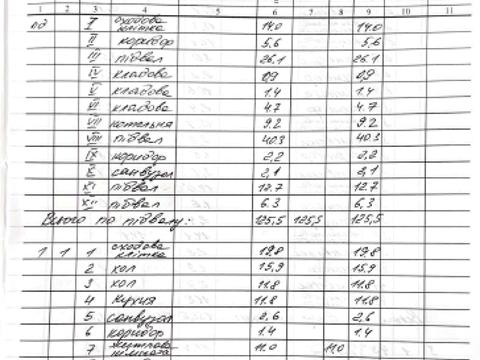 1 2 3 4 5 6 7 8 9 10 11
пд I сходова клітка 14.0 14.0
II коридор 5,6 5,6
III підвал 26.1 26.1
IV кладова 0,9 0,9
V кладова 1.4 1.4
VI кладова 4.7 4.7
VII котельня 9.2 9.2
VIII підвал 40.3 40.3
IX коридор 2,2 2,2
X санвузол 2,1 2,1
XI підвал 12.7 12.7
XII підвал 6.3 6,3
Всього по підвалу: 125,5 125,5 125,5
1 1 1 сходова клітка 19,8 19,8
2 хол 15,9 15,9
3 хол 11.8 11.8
4 кухня 11.8 11.8
5 санвузол 2,6 2,6
6 коридор 1.4 1.4
7 житлова кімната 11.0 11.0